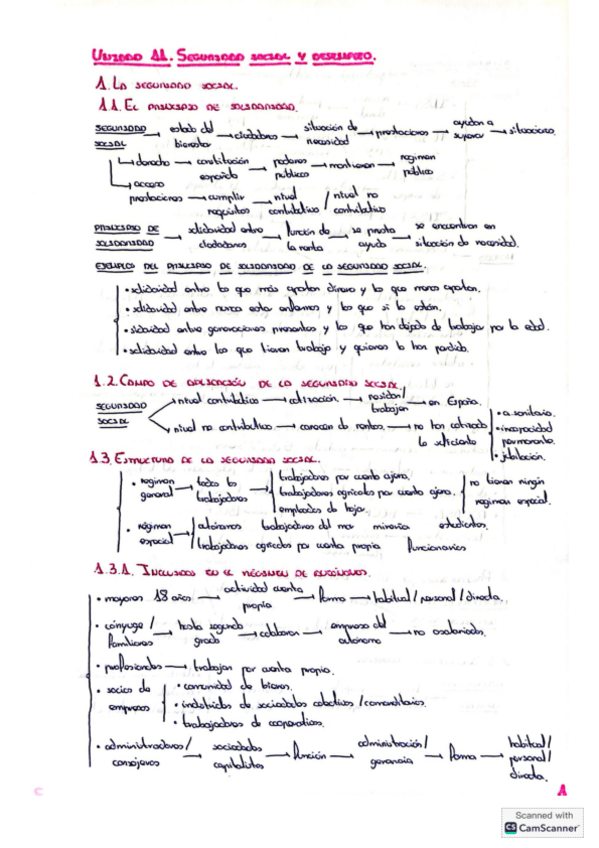 UNIDAD 11. SEGURIDAD SOCIAL Y DESEMPLEO.
1. LA SEGURIDAD SOCIAL.
1.1. EL PRINCIPIO DE SOLIDARIDAD.
SEGURIDAD SOCIAL → estado del bienestar → ciudadanos → situación de necesidad → prestaciones → ayudan a superar → situaciones
→ derecho → constitución española → poderes públicos → mantienen → regimen público
→ acceso prestaciones → cumplir requisitos → nivel contributivo / nivel no contributivo
PRINCIPIO DE SOLIDARIDAD → solidaridad entre ciudadanos → función de la renta → se presta ayuda → se encuentran en situación de necesidad.
EJEMPLOS DEL PRINCIPIO DE SOLIDARIDAD DE LA SEGURIDAD SOCIAL.
• solidaridad entre lo que más aportan dinero y lo que menos aportan.
• solidaridad entre nunca esta enfermos y lo que si lo están.
• solidaridad entre generaciones presentes y lo que han dejado de trabajar por la edad.
• solidaridad entre los que tienen trabajo y quienes lo han perdido.
1.2. CAMPO DE APLICACIÓN DE LA SEGURIDAD SOCIAL.
SEGURIDAD SOCIAL → nivel contributivo → cotización → residan / trabajen → en España.
→ nivel no contributivo → carecen de rentas. → no han cotizado lo suficiente
• a. sanitaria.
• incapacidad permanente.
• jubilación.
1.3. ESTRUCTURA DE LA SEGURIDAD SOCIAL.
• regimen general → todos los trabajadores → trabajadores por cuenta ajena.
trabajadores agrícolas por cuenta ajena.
empleados de hogar
no tienen ningún regimen especial.
• régimen especial → autónomos trabajadores del mar minería estudiantes.
trabajadores agrícolas por cuenta propia funcionarios
1.3.1. INCLUIDOS EN EL RÉGIMEN DE AUTÓNOMOS.
• mayores 18 años → actividad cuenta propia → forma → habitual / personal / directa.
• cónyuge / familiares → hasta segundo grado → colaboran → empresa del autónomo → no asalariados.
• profesionales → trabajan por cuenta propia.
• socios de empresas
• comunidad de bienes.
• industriales de sociedades colectivas / comanditarias.
• trabajadores de cooperativas.
• administradores / consejeros → sociedades capitalistas → función → administración / gerencia → forma → habitual / personal / directa.
C
A
Scanned with
CS CamScanner